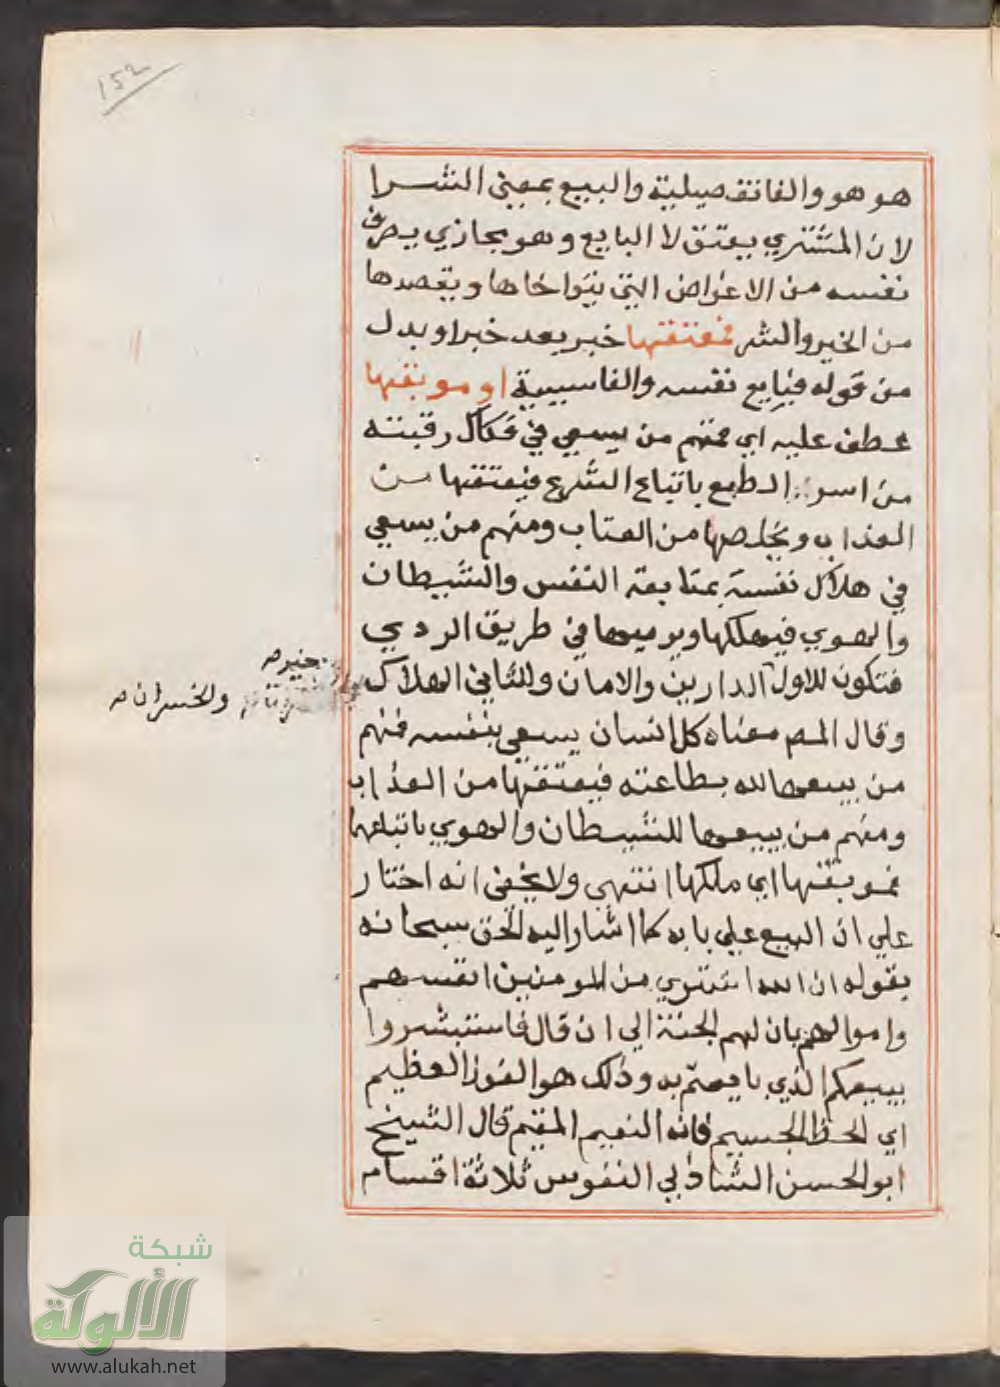 152
هو هو والفا تفصيلية والبيع بمعني الشرا
لان المشتري يعتق لا البايع وهو مجازي يصرف
نفسه من الاغراض التي يتواخاها ويقصدها
من الخير والشر فمعتقها خبر بعد خبر او بدل
من قوله فبايع نفسه والفا سببية او موبقها
عطف عليه اي فمنهم من يسعي في فكاك رقبته
من اسر الطبع باتباع الشرع فيعتقها من
العذاب ويخلصها من العتاب ومنهم من يسعي
في هلاك نفسه بمتابعة النفس والشيطان
والهوي فيهلكها ويرميها في طريق الردي
فتكون للاول الدارين والامان وللثاني الهلاك
والخسران صح
وقال المص معناه كل انسان يسعي بنفسه فمنهم
من يبيعها لله بطاعته فيعتقها من العذاب
ومنهم من يبيعها للشيطان والهوي باتباعها
فموبقها اي ملكها انتهي ولا يخفي انه اختار
علي ان البيع علي بابه كما اشار اليه الحق سبحانه
بقوله ان الله اشتري من المومنين انفسهم
واموالهم بان لهم الجنة الي ان قال فاستبشروا
ببيعكم الذي بايعتم به وذلك هو الفوز العظيم
اي الحظ الجسيم فانه النعيم المقيم قال الشيخ
ابو الحسن الشاذلي النفوس ثلاثة اقسام
شبكة
الألوكة
www.alukah.net